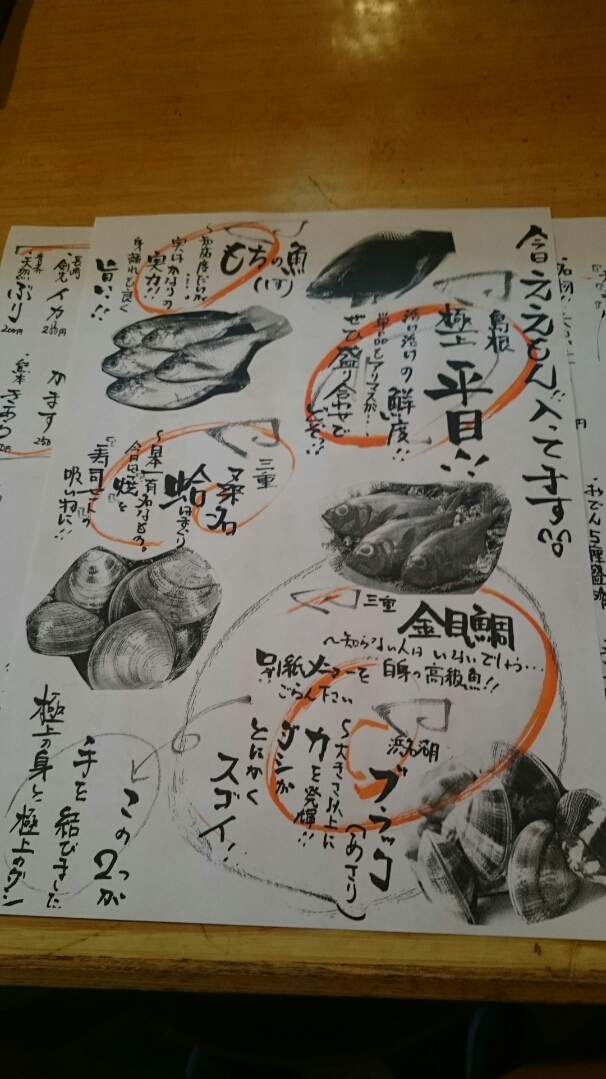 今ええもん!!入ってます
島根
極上 平目!!
活け活けの鮮度!!
単品でもアリマスが…
ぜひ盛り合わせで
どうぞ!!
もちの魚
～知名度だけが
…実はかなりの
実力!!
身離れも良く
旨い!!
三重
桑名
蛤
はまぐり
～日本一有名なもの。
今日は焼を
『寿司セット』の
吸いねに!!
三重
金目鯛
～知らない人はいないでしょう…
白身の高級魚!!
別紙メニューを
ごらん下さい
浜名湖
ブラック
(あさり)
～大きさ以上に
力を発揮!!
ダシが
とにかく
スゴイ!
この2つが
手を結びました
極上の身と極上のダシ
長崎
剣先イカ
天然ぶり
200円
かます
250
熊本